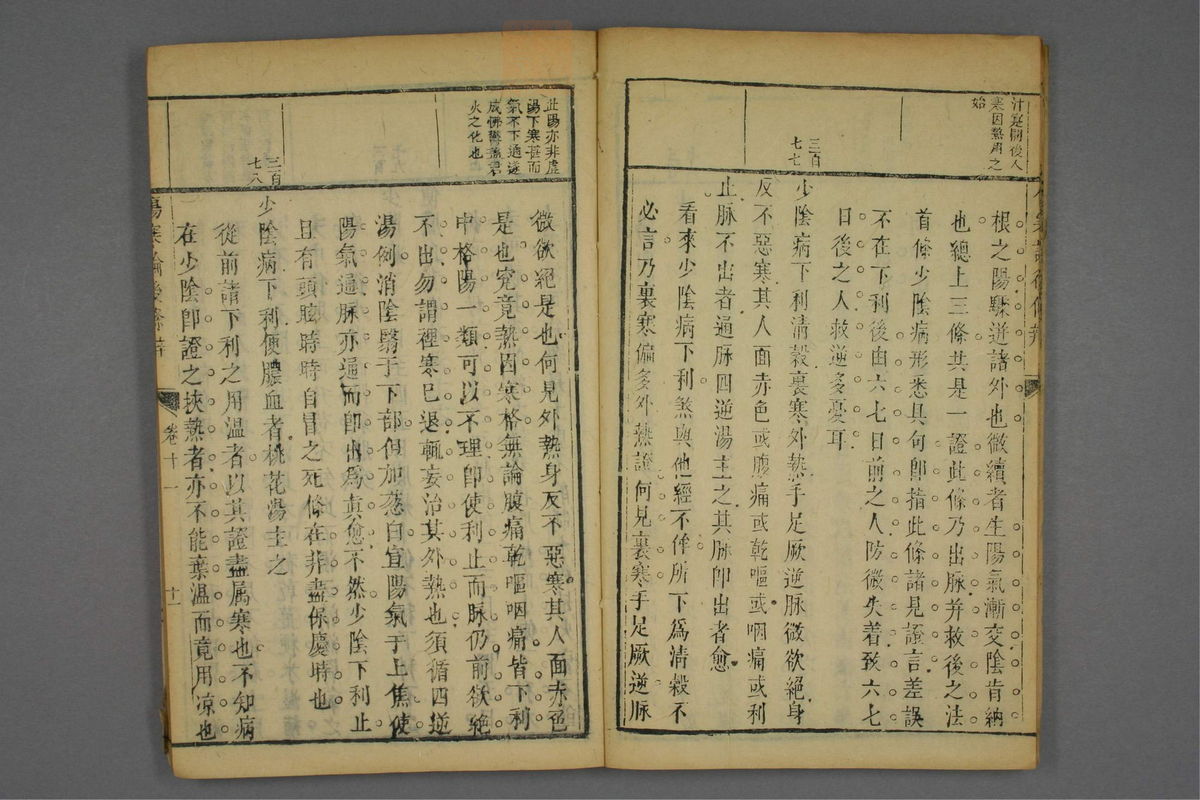 汁寔關後人
寒因熱用之
始
三百
七七
根之陽驟迸諸外也微續者生陽氣漸交陰肯納
也總上三條共是一證此條乃出脉幷救後之法
首條少陰病形悉具句卽指此條諸見證言差誤
不在下利後由六七日前之人防微失着致六七
日後之人救逆多憂耳
少陰病下利清穀裏寒外熱手足厥逆脉微欲絕身
反不惡寒其人面赤色或腹痛或乾嘔或咽痛或利
止脉不出者通脉四逆湯主之其脉卽出者愈
看來少陰病下利煞與他經不侔所下爲清穀不
必言乃裏寒偏多外熱證何見裏寒手足厥逆脉
此陽亦非虛
陽下寒甚而
氣不下通遂
成怫鬱燕君
火之化也
三百
七八
微欲絕是也何見外熱身反不惡寒其人面赤色
是也究竟熱因寒格無論腹痛乾嘔咽痛皆下利
中格陽一類可以不理卽使利止而脉仍前欲絕
不出勿謂裡寒已退輒妄治其外熱也須循四逆
湯例消陰翳于下部但加葱白宜陽氣于上焦使
陽氣通脉亦通而卽出爲眞愈不然少陰下利止
且有頭眩時時自冒之死條在非盡保慶時也
少陰病下利便膿血者桃花湯主之
從前諸下利之用溫者以其證盡屬寒也不知病
在少陰卽證之挾熱者亦不能棄溫而竟用凉也
傷寒論後條辨
卷十一
十一